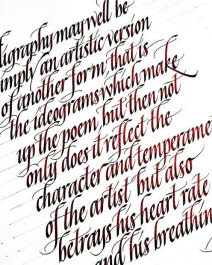 ligraphy may well be
simply an artistic version
of another form, that is
the ideograms which make
up the poem, but then not
only does it reflect the
character and temperame
of the artist but also
betrays his heart rate
and his breathin